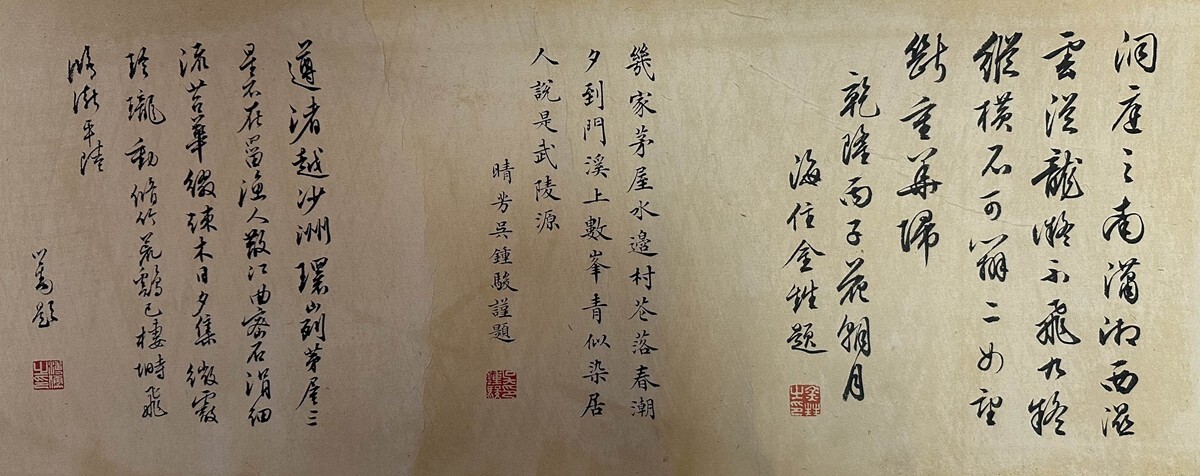 洞庭之南瀟湘西滋
雲從龍凝不飛九疑
縱橫不可辨二女望
斷重華歸
乾隆丙子花朝月
海住金甡題
幾家茅屋水邊村花落春潮
夕到門溪上數峯青似染居
人說是武陵源
晴芳吳鍾駿謹題
遵渚越沙洲環山列茅屋三
星不在罶漁人散江曲密石涓細
流苕華綴疎木日夕集微霰
玲瓏動脩竹荒鷄已棲塒飛
平陸
題